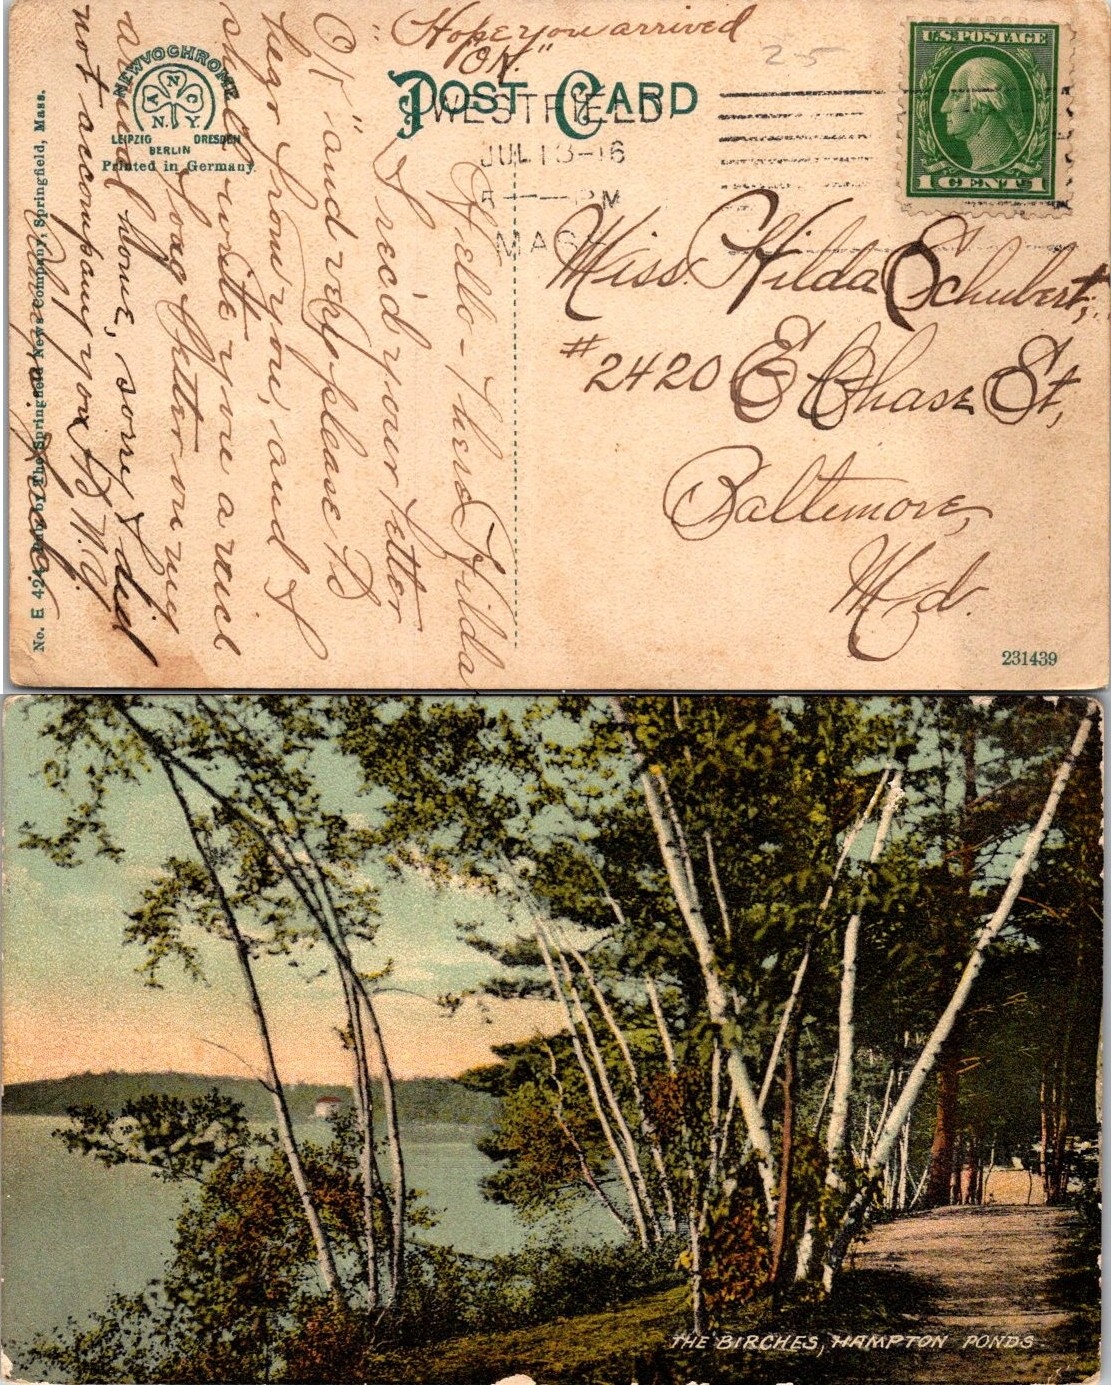 "Hope you arrived
OK."
25
POST CARD
U.S. POSTAGE
1 CENT 1
WESTFIELD
JUL 13-16
5 — PM
MASS.
NEWVOCHROME
A N C
N. Y.
LEIPZIG DRESDEN
BERLIN
Printed in Germany
Miss. Hilda Schubert,
#2420 E Chase St,
Baltimore,
Md.
231439
Hello- there Hilda
I rec'd your letter
OK "and very please to
hear from you, and I
shall write you a nice
long letter on my
arrival home, sorry I did
not accompany you to N.Y.
No. E 424. Pub. by The Springfield News Company, Springfield, Mass.
THE BIRCHES, HAMPTON PONDS